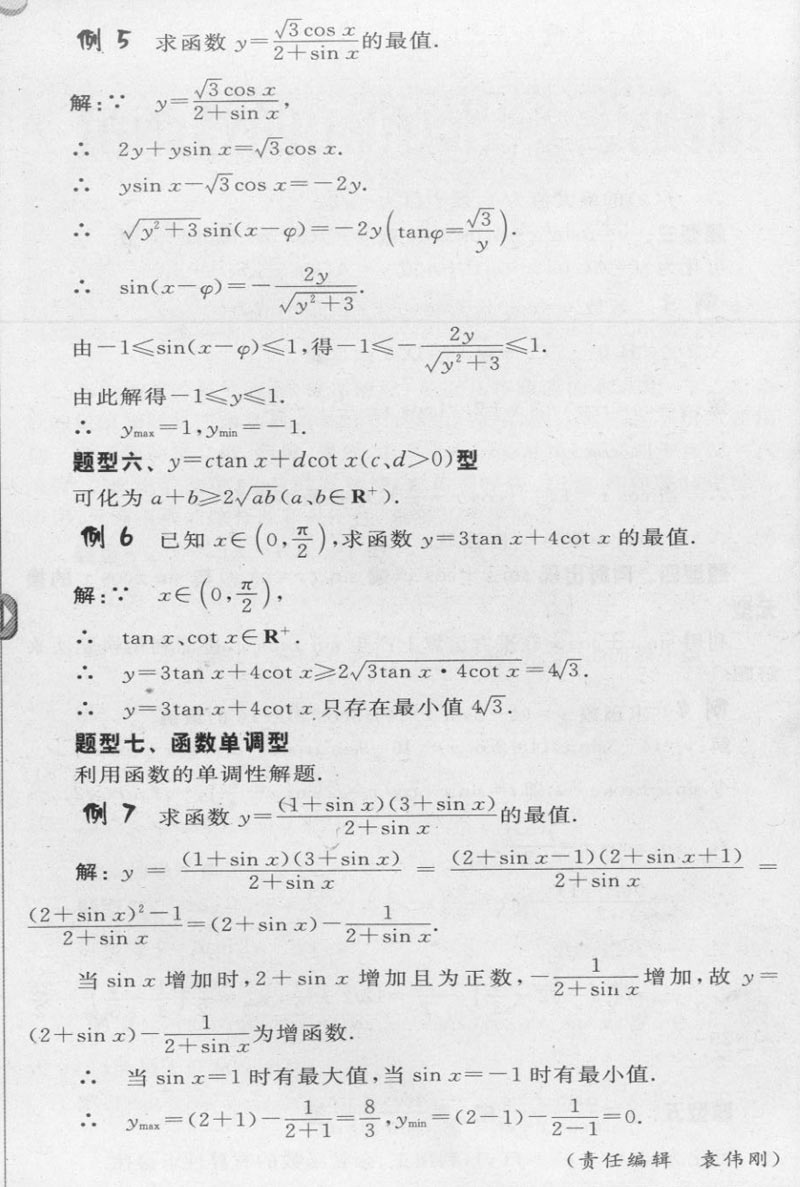 例 5 求函数 y=√3cos x/(2+sin x)的最值.
解:∵ y=√3cos x/(2+sin x),
∴ 2y+ysin x=√3cos x.
∴ ysin x-√3cos x=-2y.
∴ √(y²+3)sin(x-φ)=-2y(tanφ=√3/y).
∴ sin(x-φ)=-2y/√(y²+3).
由-1≤sin(x-φ)≤1,得-1≤-2y/√(y²+3)≤1.
由此解得-1≤y≤1.
∴ y_max=1,y_min=-1.
题型六、y=ctan x+dcot x(c、d>0)型
可化为 a+b≥2√ab(a、b∈R⁺).
例 6 已知 x∈(0,π/2),求函数 y=3tan x+4cot x 的最值.
解:∵ x∈(0,π/2),
∴ tan x、cot x∈R⁺.
∴ y=3tan x+4cot x≥2√(3tan x·4cot x)=4√3.
∴ y=3tan x+4cot x 只存在最小值 4√3.
题型七、函数单调型
利用函数的单调性解题.
例 7 求函数 y=(1+sin x)(3+sin x)/(2+sin x)的最值.
解:y=(1+sin x)(3+sin x)/(2+sin x)=(2+sin x-1)(2+sin x+1)/(2+sin x)=
((2+sin x)²-1)/(2+sin x)=(2+sin x)-1/(2+sin x).
当 sin x 增加时,2+sin x 增加且为正数,-1/(2+sin x)增加,故 y=
(2+sin x)-1/(2+sin x)为增函数.
∴ 当 sin x=1 时有最大值,当 sin x=-1 时有最小值.
∴ y_max=(2+1)-1/(2+1)=8/3,y_min=(2-1)-1/(2-1)=0.
(责任编辑 袁伟刚)